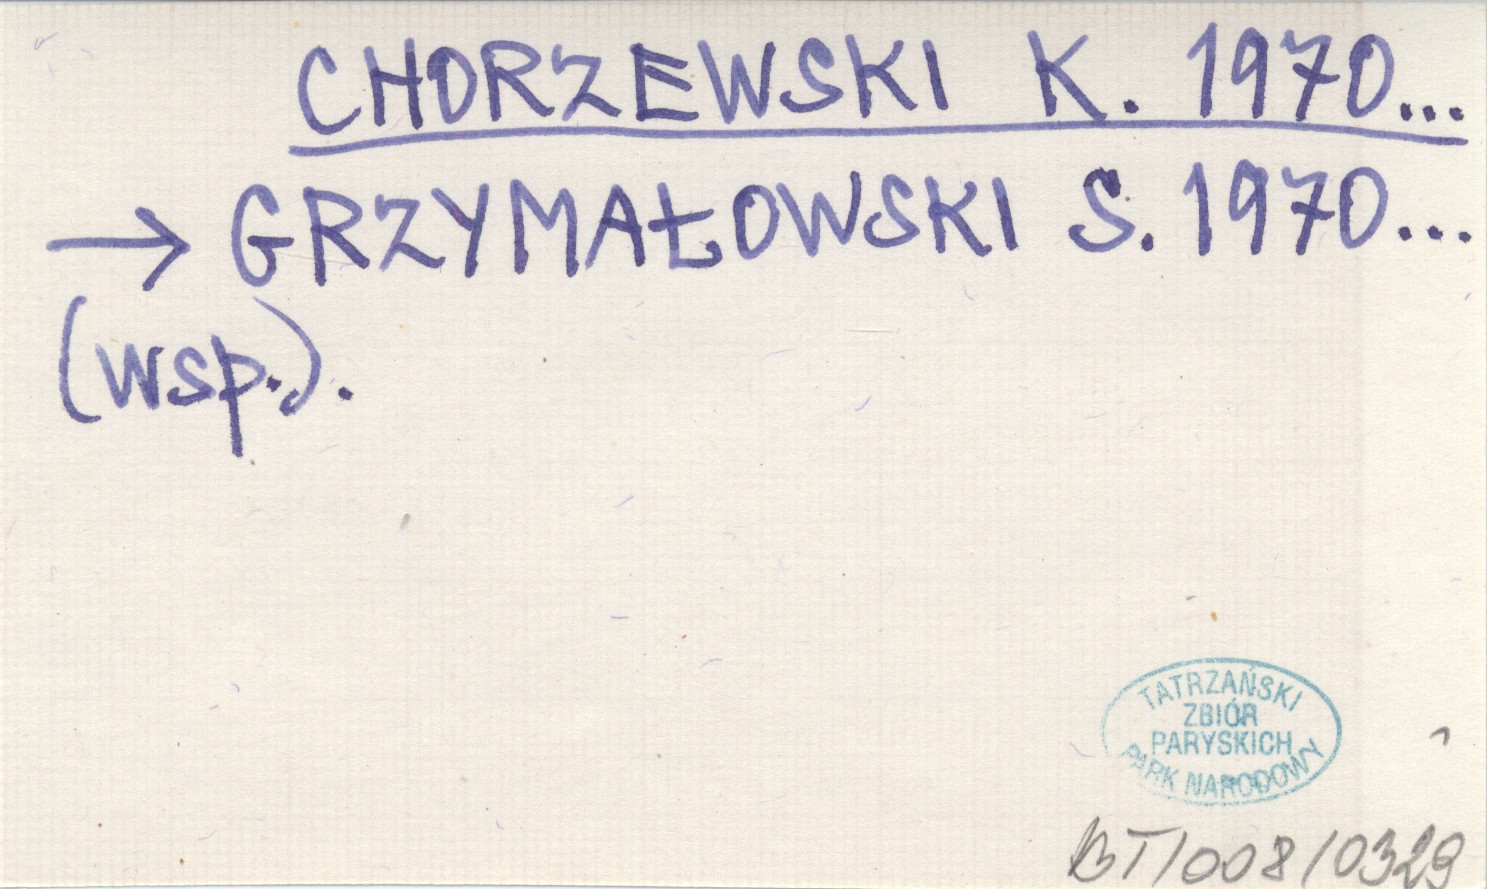 CHORZEWSKI K. 1970...
→ GRZYMAŁOWSKI S. 1970...
(wsp.).
TATRZAŃSKI
ZBIÓR
PARYSKICH
PARK NARODOWY
BT/008/0329